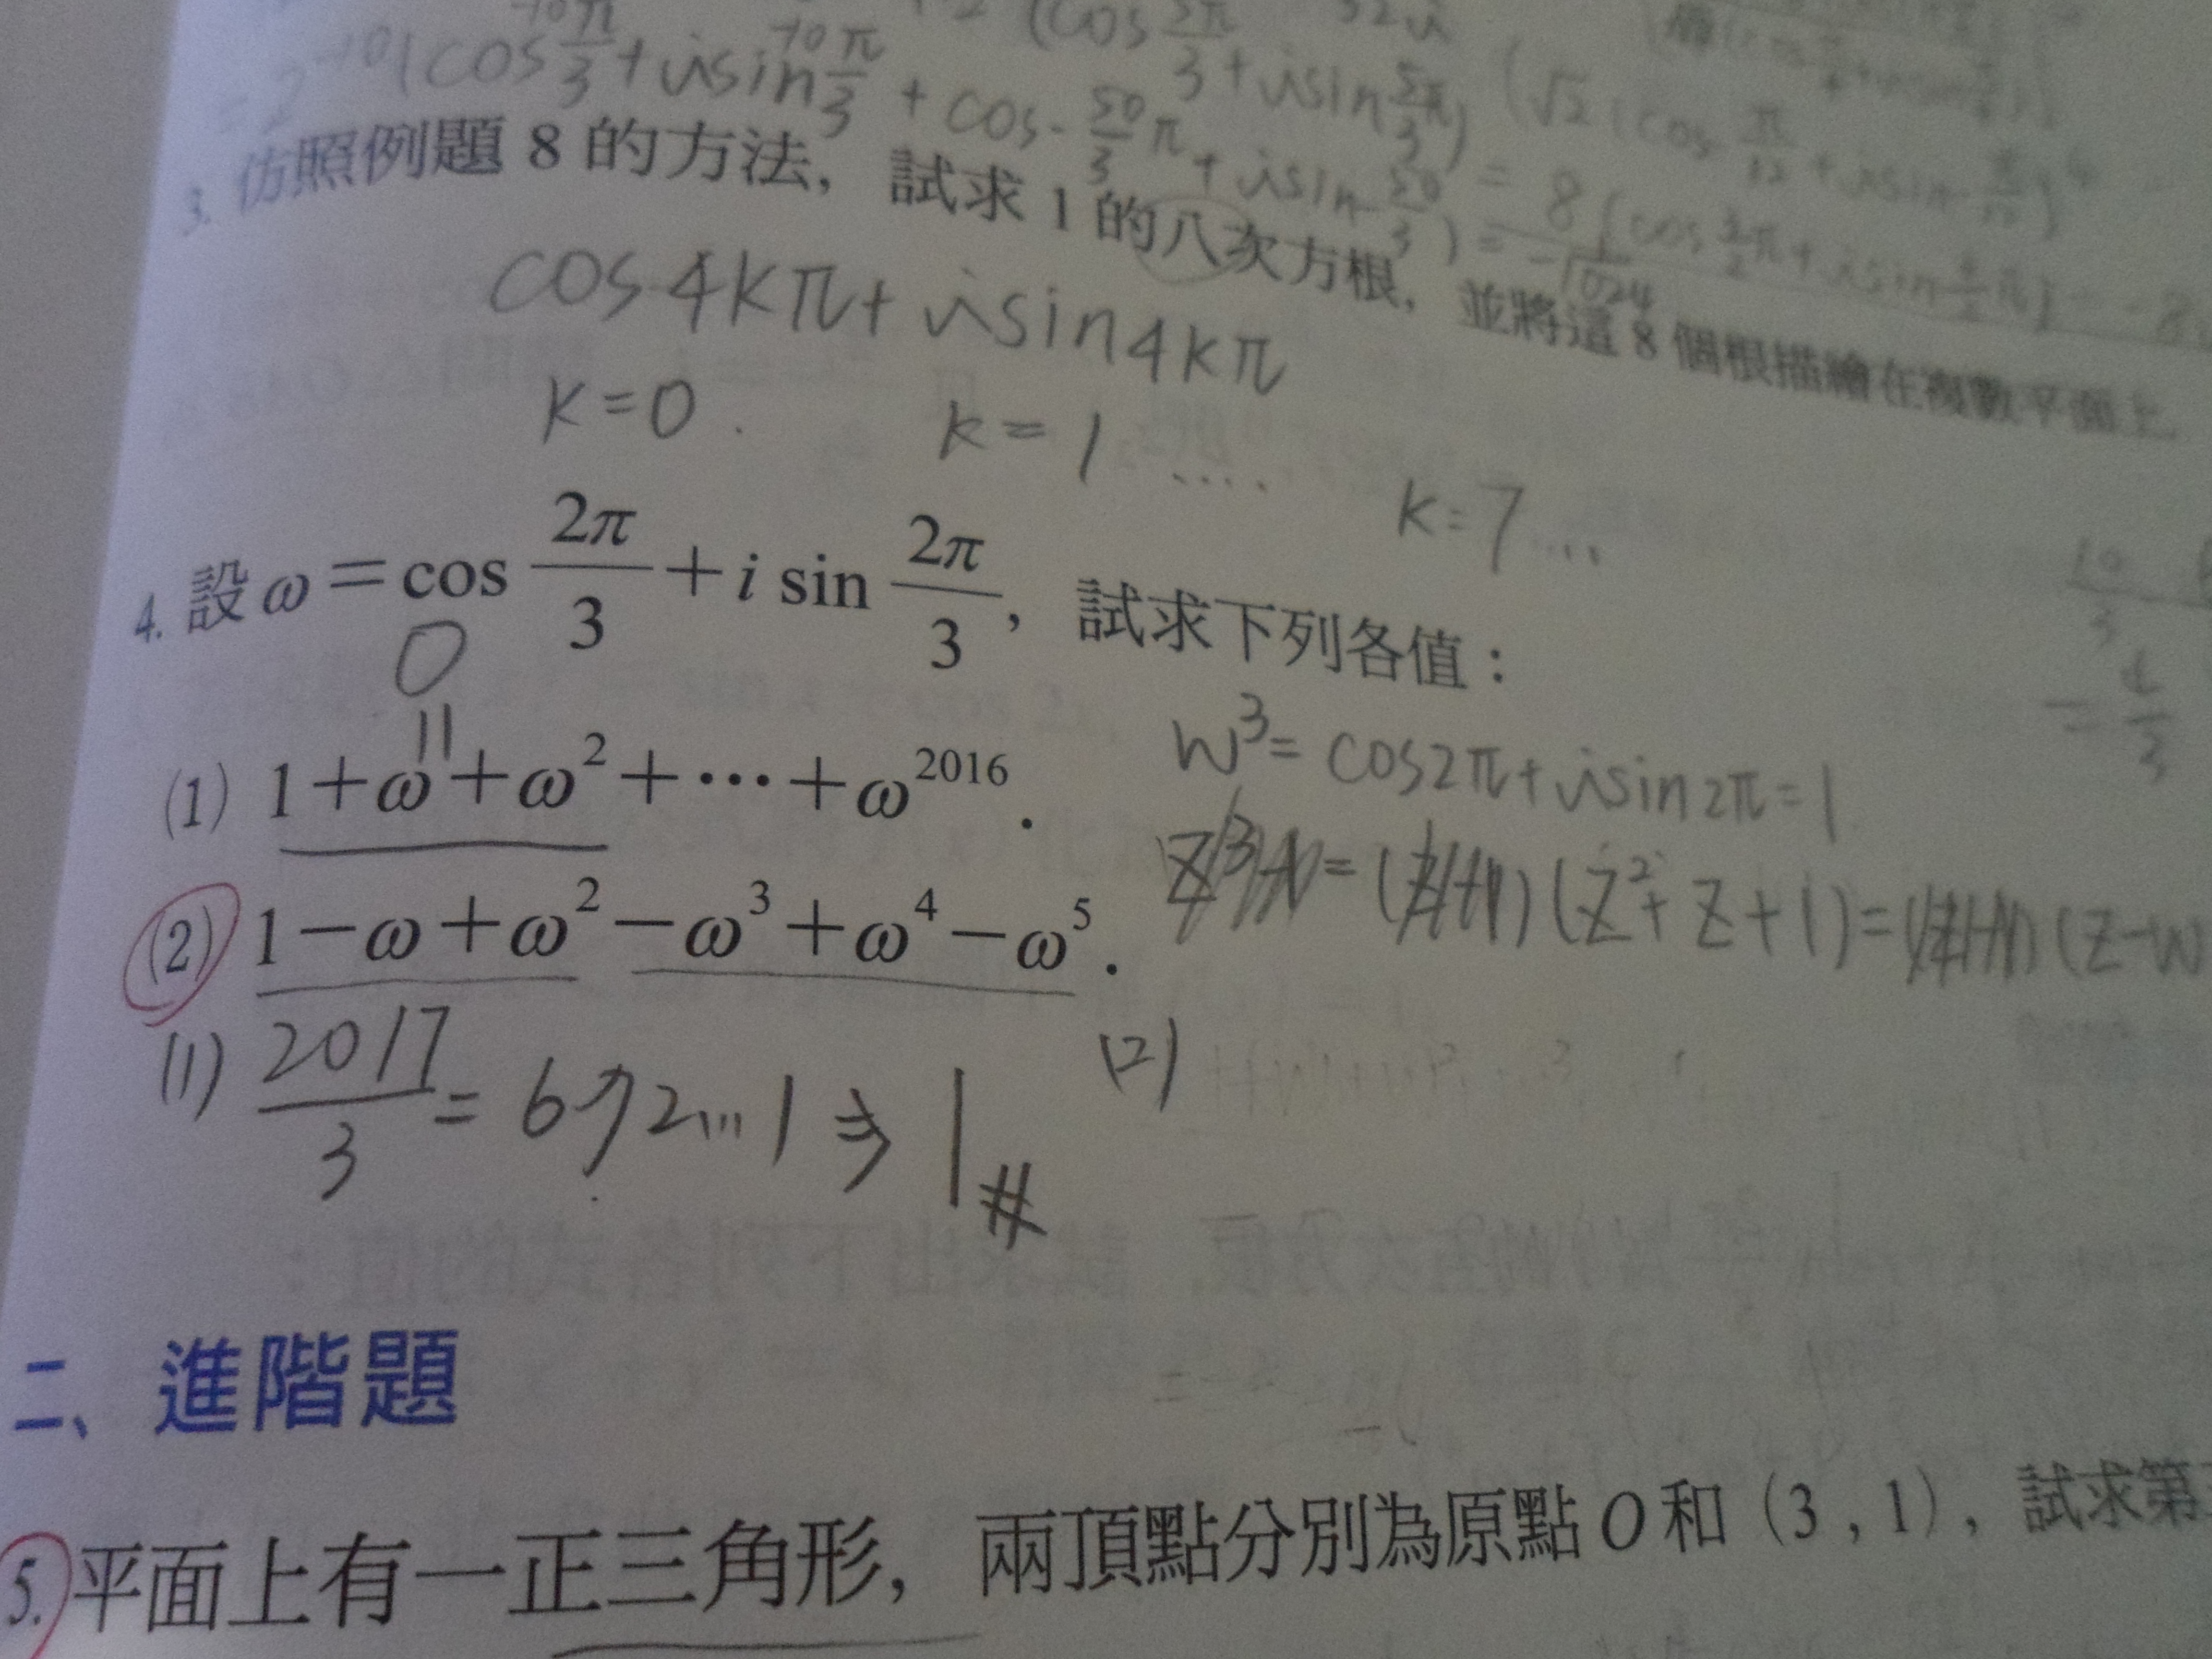 = 2⁻¹⁰(cos -10π/3 + i sin -10π/3 + cos - 50/3 π + i sin - 50/3) = -1/1024
(cos 5π/3 + i sin 5π/3)
(√2(cos π/12 + i sin π/12)⁴
= 8[cos 3/2 π + i sin 3/2 π] = -8
3. 仿照例題 8 的方法，試求 1 的八次方根，並將這 8 個根描繪在複數平面上.
cos 4kπ + i sin 4kπ
k=0 . k=1 .... k=7 ...
4. 設 ω = cos 2π/3 + i sin 2π/3，試求下列各值：
0
11
(1) 1+ω+ω²+⋯+ω²⁰¹⁶.
w³ = cos2π + i sin 2π = 1
(2) 1−ω+ω²−ω³+ω⁴−ω⁵.
(z²+z+1)= (z-w
(1) 2017/3 = 672...1 ⇒ 1 #
(2)
10/3
= 4/3
二、進階題
5. 平面上有一正三角形，兩頂點分別為原點 O 和 (3 , 1)，試求第